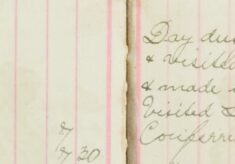 Day du
& visite
& made
Visited
Conferre
8/
8/30